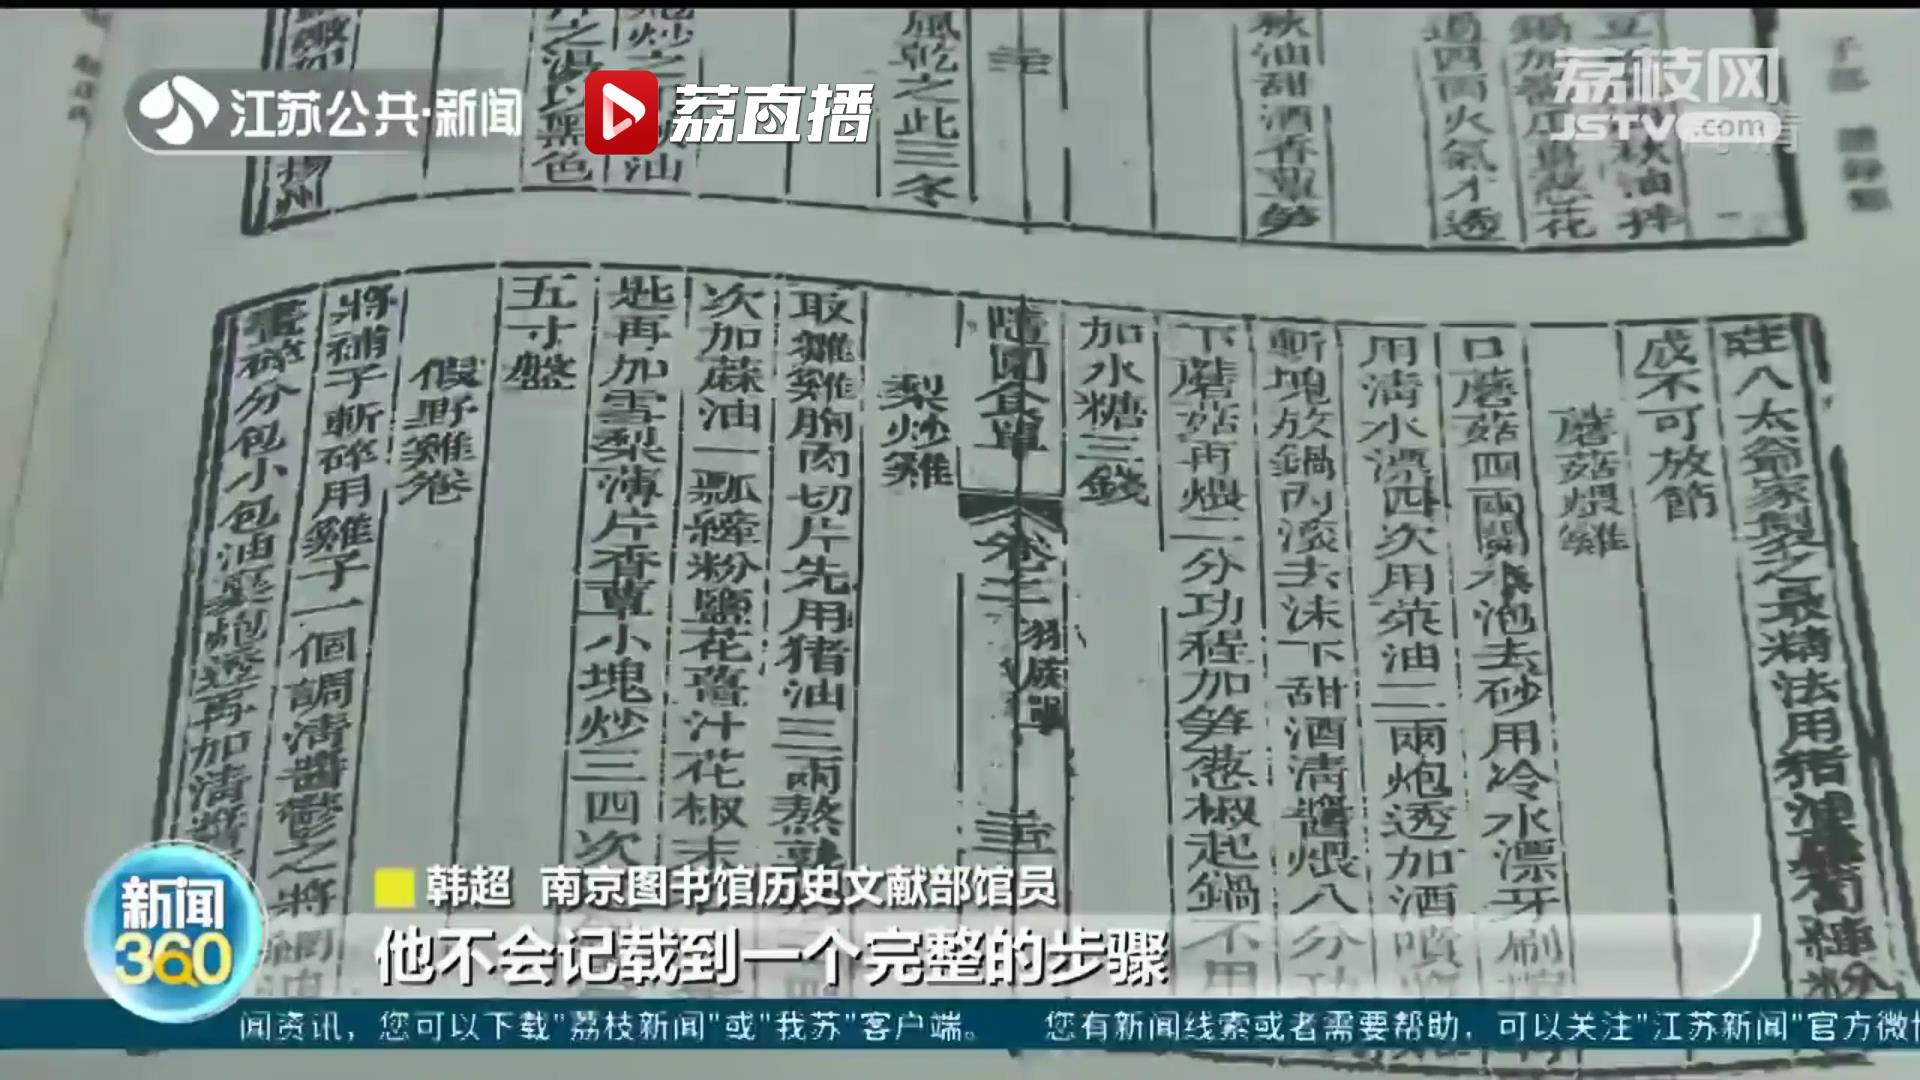 江苏公共·新闻
荔直播
荔枝网
JSTV.com
豆
秋油拌
鍋加醬瓜薑葱花
過四两火氣才透
秋油甜酒香蕈笋
風乾之此三冬
炒之
秋油
黑色
揚州
莊八太爺家製之最精法用猪油
縴粉
成不可放節
蘑菇煨雞
口蘑菇四兩開水泡去砂用冷水漂牙刷
用清水漂四次用菜油二兩炮透加酒噴
斬塊放鍋内滚去沫下甜酒清醬煨八分功
下蘑菇再煨二分功程加笋葱椒起鍋不用
加水糖三錢
隨園食單
卷之
羽族單
梨炒雞
取雛雞胸肉切片先用猪油三兩熬熟
次加蔴油一瓢縴粉鹽花薑汁花椒末
匙再加雪梨薄片香蕈小塊炒三四次
五寸盤
假野雞卷
將脯子斬碎用雞子一個調清醬鬱之將網油
畫碎分包小包油裏炮透再加清醬
韩超 南京图书馆历史文献部馆员
他不会记载到一个完整的步骤
新闻
360
闻资讯，您可以下载"荔枝新闻"或"我苏"客户端。 您有新闻线索或者需要帮助，可以关注"江苏新闻"官方微